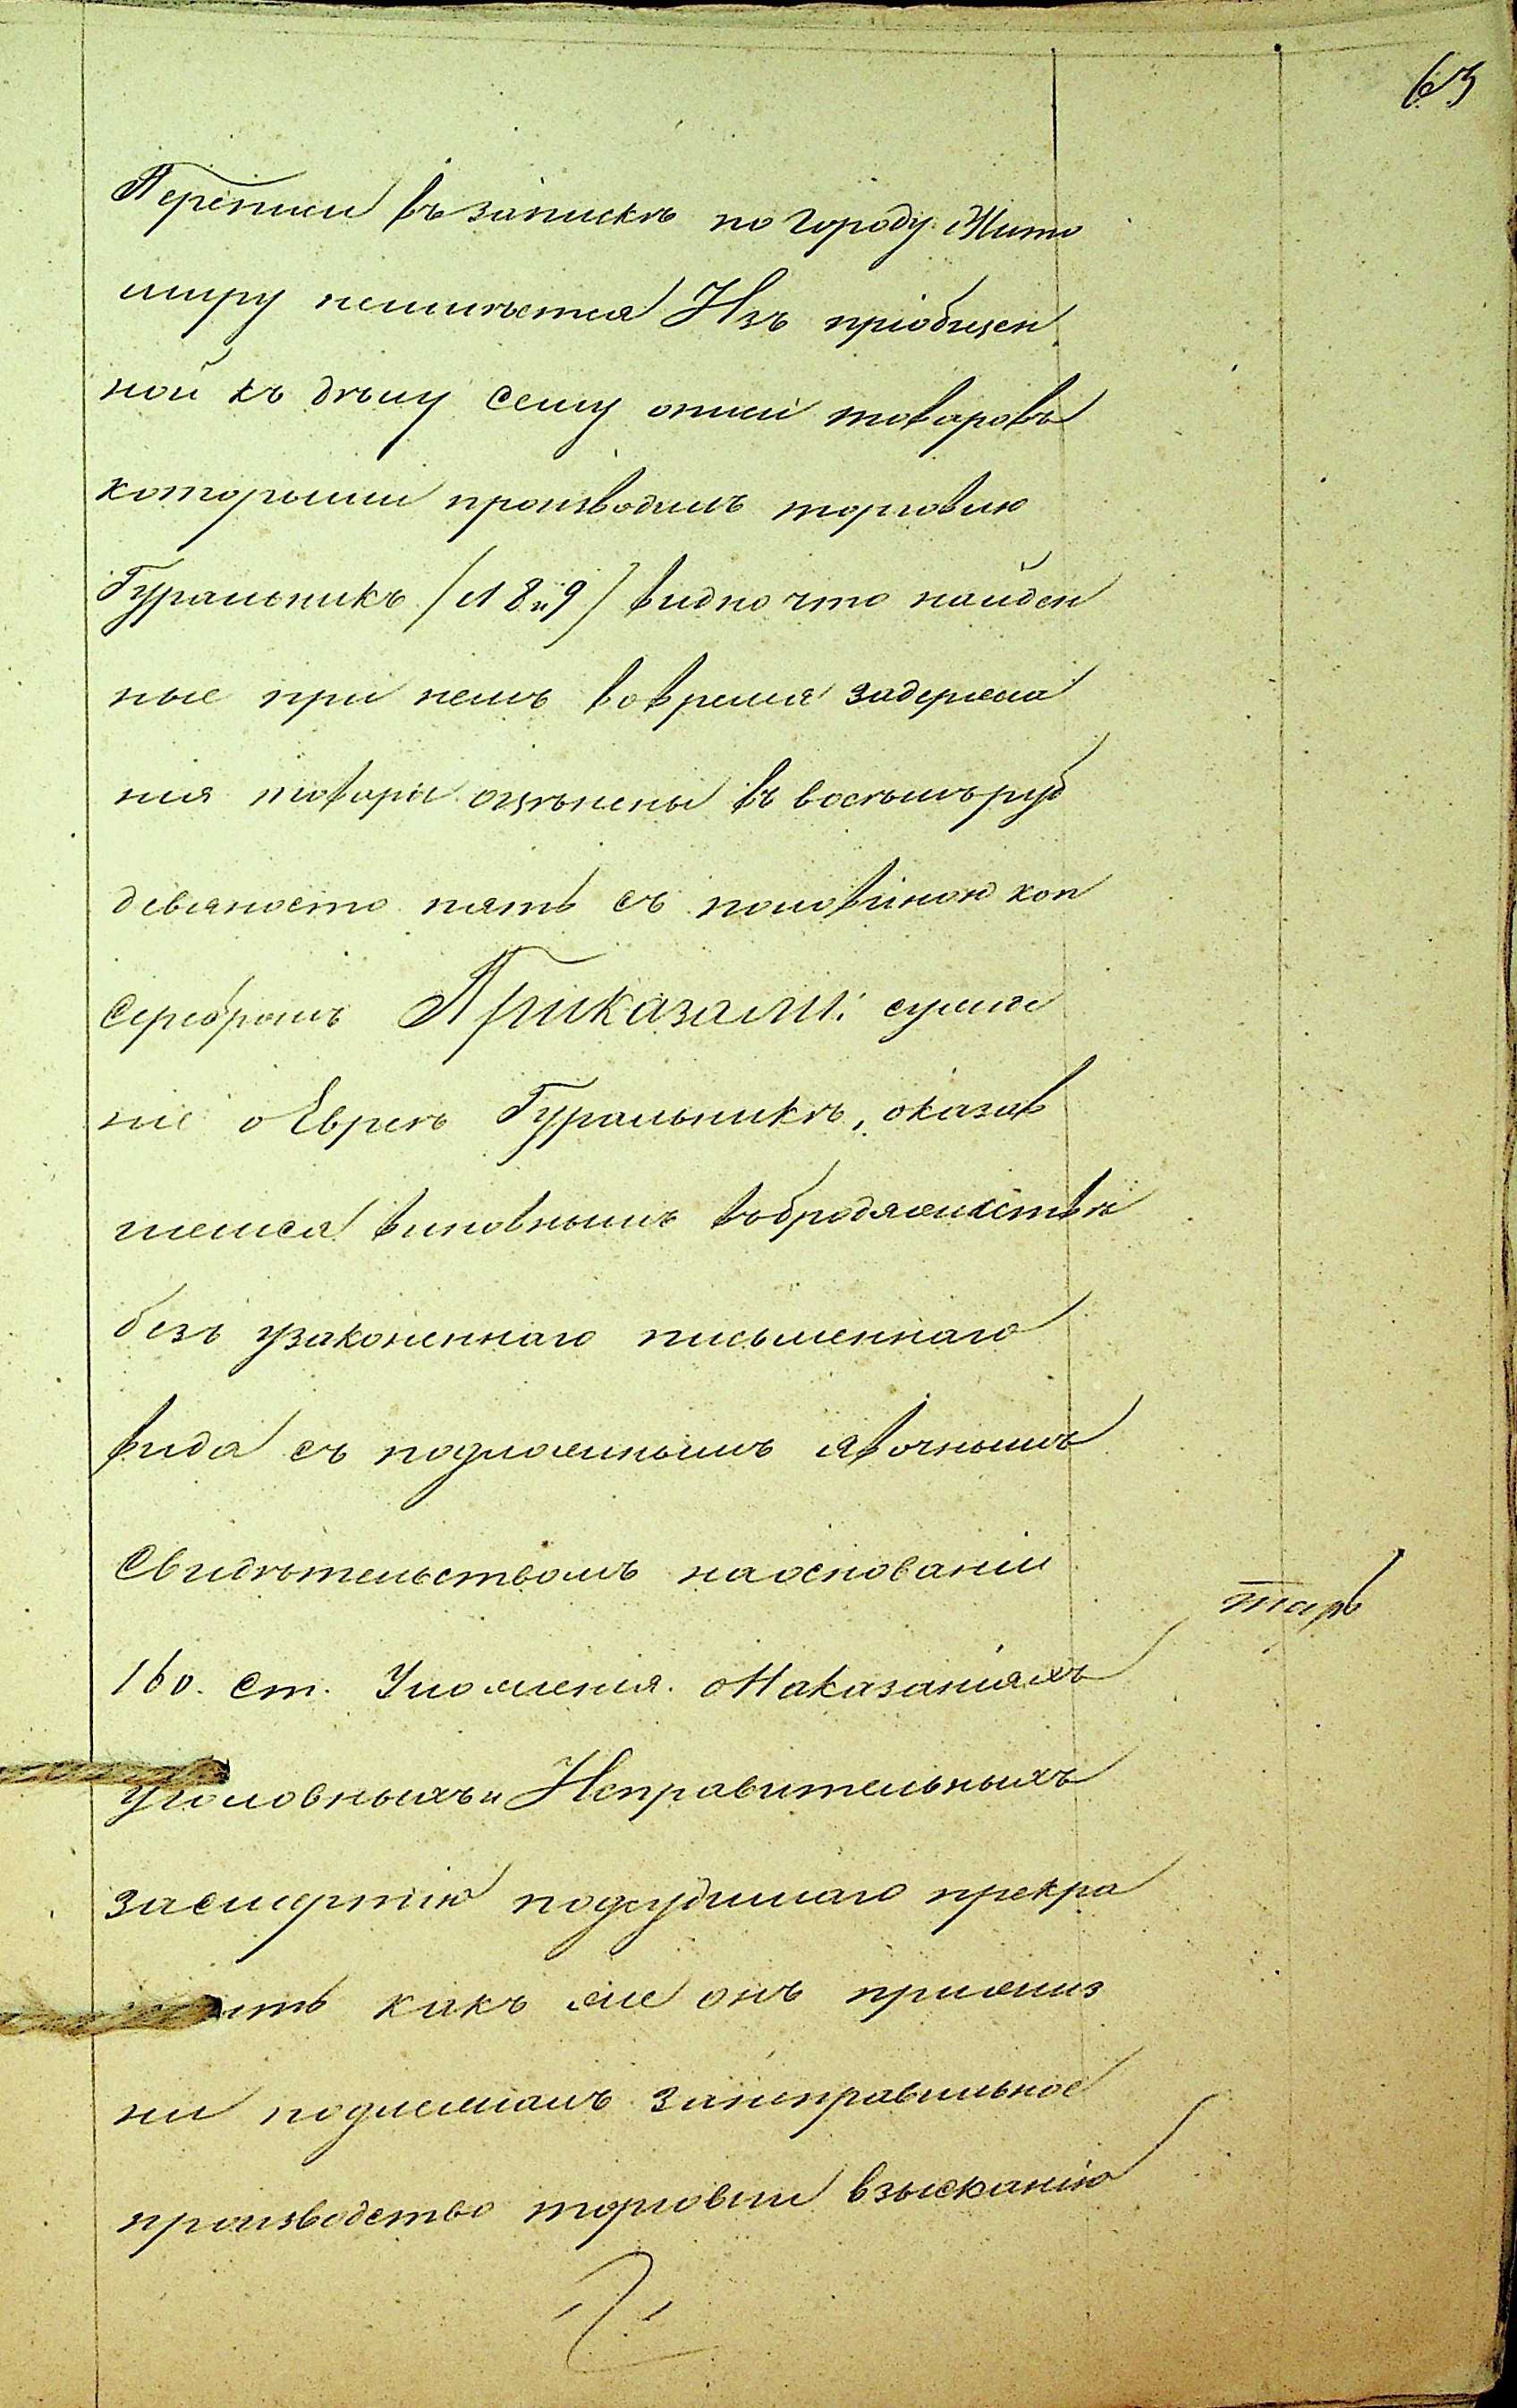 63
Переписи въ запискѣ по городу Жито
миру неимѣется Изъ пріобщен
ной къ дѣлу сему описи товаровъ
которыми производилъ торговлю
Гуральникъ /л 8 и 9/ видно что найден
ные при немъ вовремя задержа
нія товары оцѣнены въ восѣмъ руб
девяносто пять съ половіною коп
серебромъ Приказали: сужде
ніе о Евреѣ Гуральникѣ, оказав
шемся виновнымъ въ бродяжествѣ
безъ узаконеннаго письменнаго
вида съ подложнымъ явочнымъ
свидѣтельствомъ на основаніи
160. ст. Уложенія о Наказаніяхъ
Уголовныхъ и Исправительныхъ
за смертію подсудимаго прекра
тить какъ же онъ прижиз
ни подлежалъ за неправильное
производство торговли взысканію